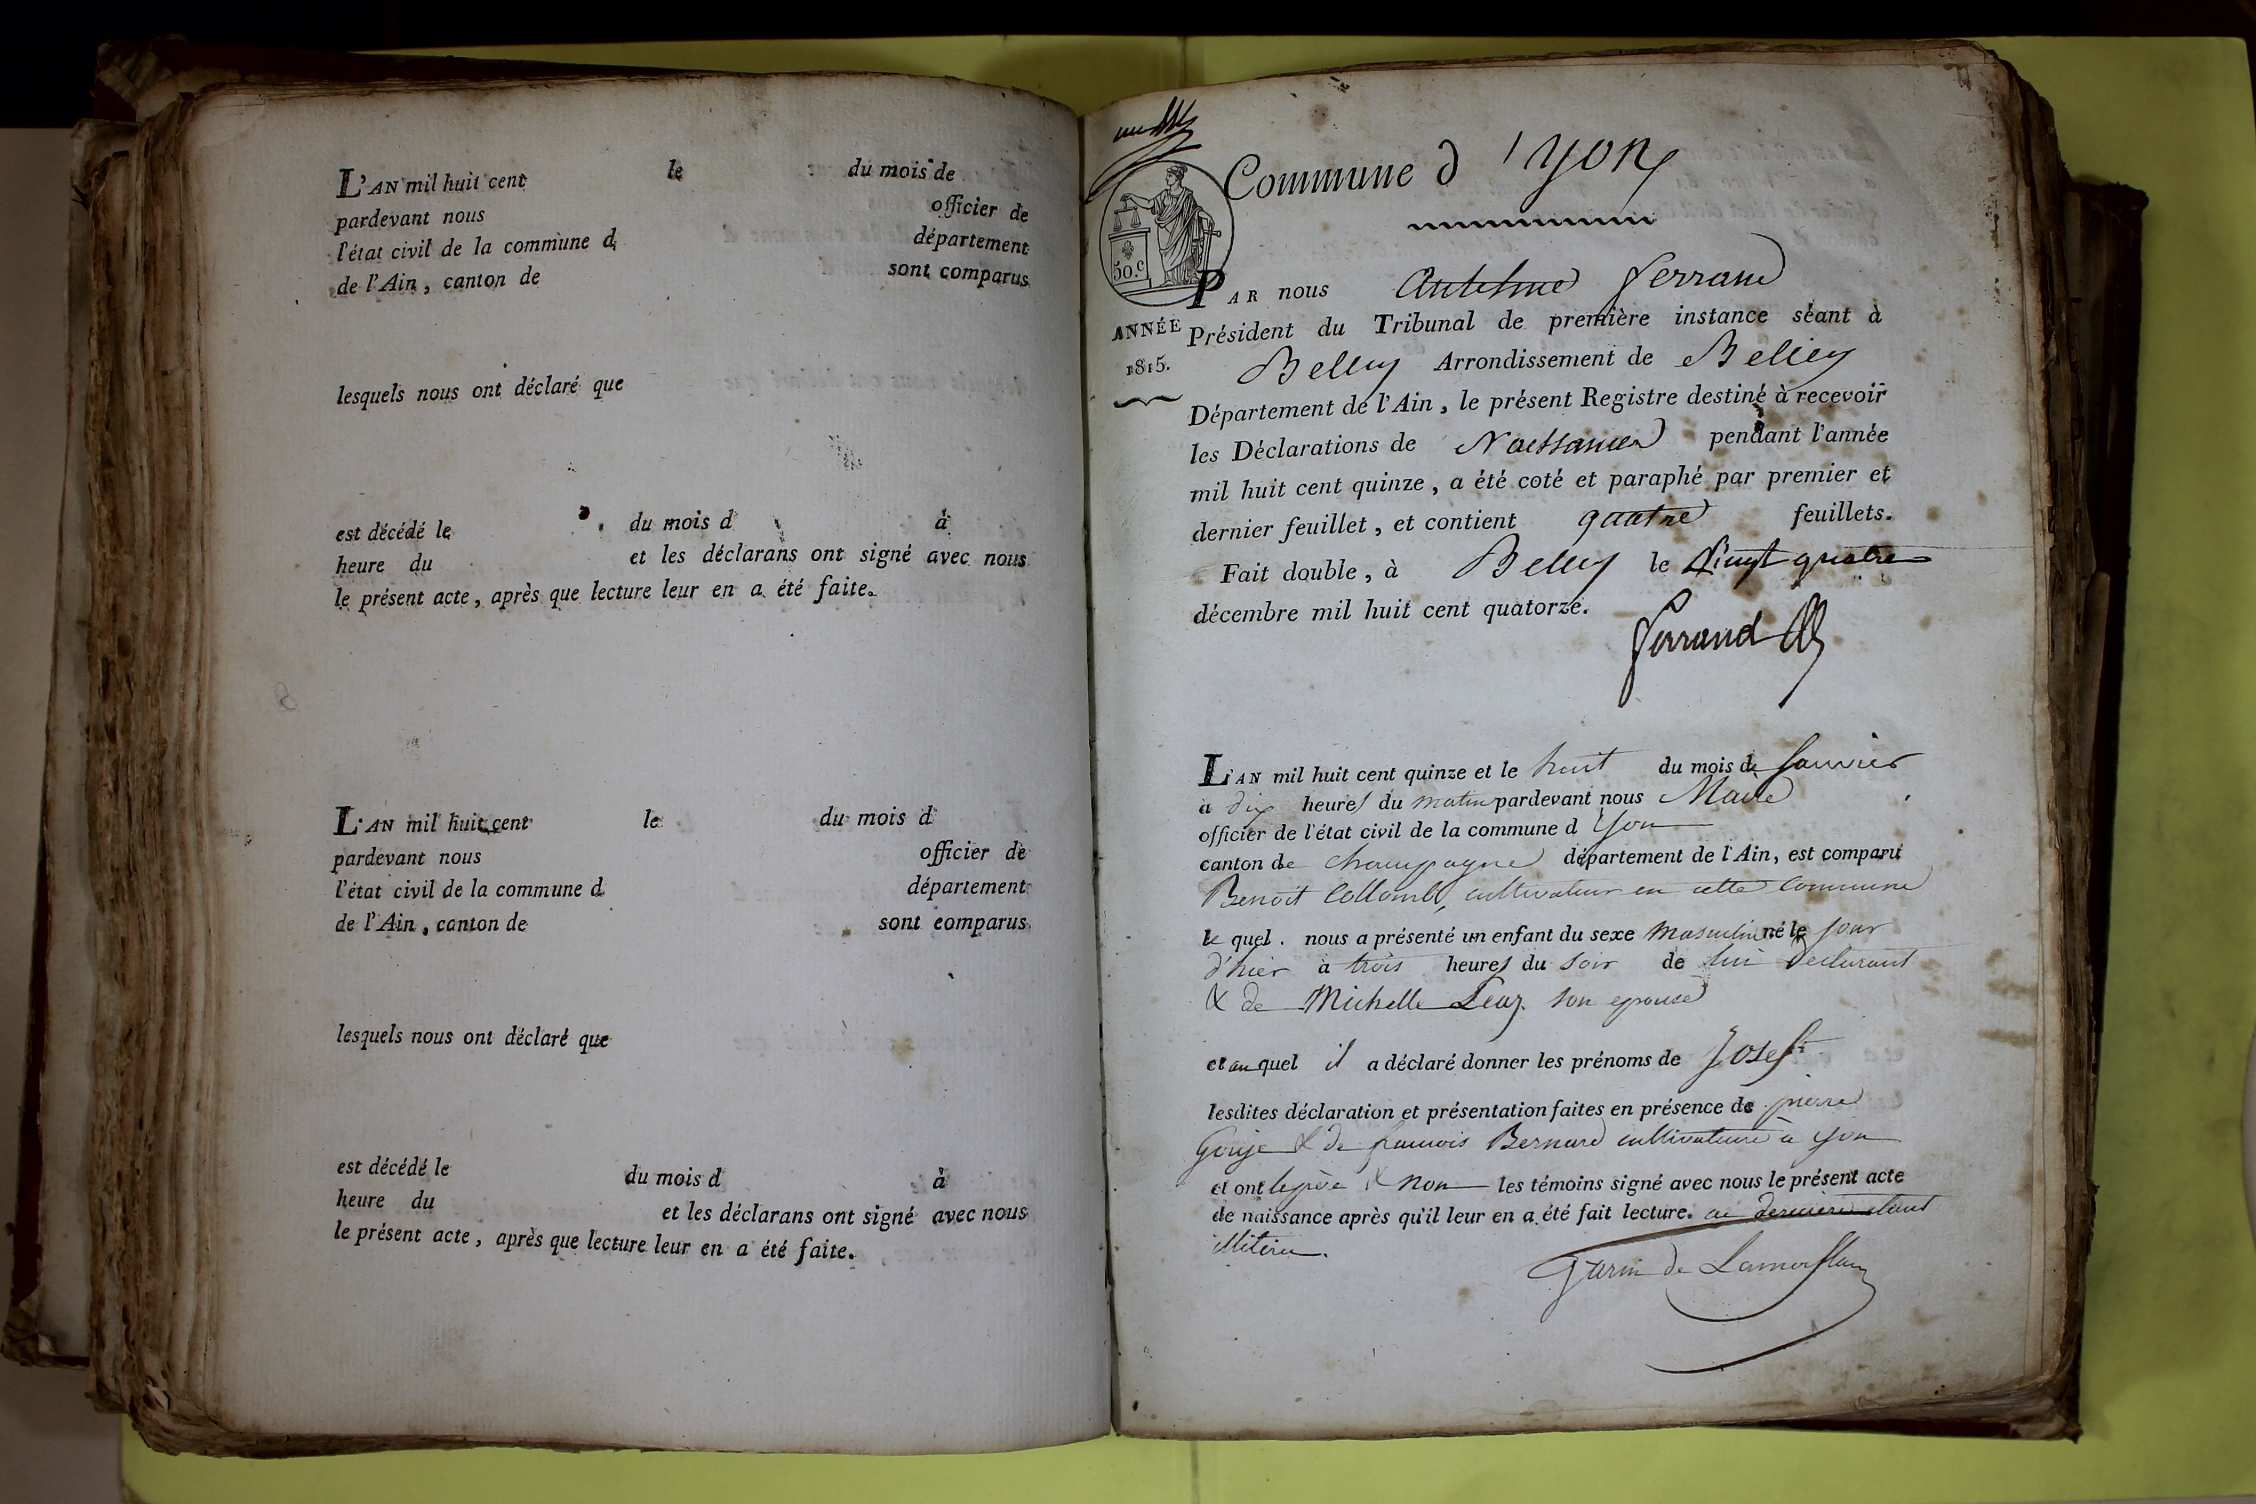 L'AN mil huit cent le du mois de
pardevant nous officier de
l'état civil de la commune d département
de l'Ain, canton de sont comparus
lesquels nous ont déclaré que
est décédé le du mois d à
heure du et les déclarans ont signé avec nous
le présent acte, après que lecture leur en a été faite.
L'AN mil huit cent le du mois d
pardevant nous officier de
l'état civil de la commune d département
de l'Ain, canton de sont comparus
lesquels nous ont déclaré que
est décédé le du mois d à
heure du et les déclarans ont signé avec nous
le présent acte, après que lecture leur en a été faite.
Commune d'yon
50.c
PAR nous Anthelme ferrand
ANNÉE
1815.
Président du Tribunal de première instance séant à
Belley Arrondissement de Belley
Département de l'Ain, le présent Registre destiné à recevoir
les Déclarations de Naissances pendant l'année
mil huit cent quinze, a été coté et paraphé par premier et
dernier feuillet, et contient quatre feuillets.
Fait double, à Belley le Vingt quatre
décembre mil huit cent quatorze.
ferrand
L'AN mil huit cent quinze et le huit du mois de Janvier
à dix heures du matin pardevant nous Maire
officier de l'état civil de la commune d yon
canton de champagne département de l'Ain, est comparu
Benoit Collomb, cultivateur en cette commune
le quel. nous a présenté un enfant du sexe masculin né le jour
d'hier à trois heures du soir de lui déclarant
& de Michelle son epouse
et au quel il a déclaré donner les prénoms de Joseph
lesdites déclaration et présentation faites en présence de pierre
Gouje & de francois Bernard cultivateurs à yon
et ont le père & non les témoins signé avec nous le présent acte
de naissance après qu'il leur en a été fait lecture. ces derniers étant
illiteres.
Garin de Lamorflan